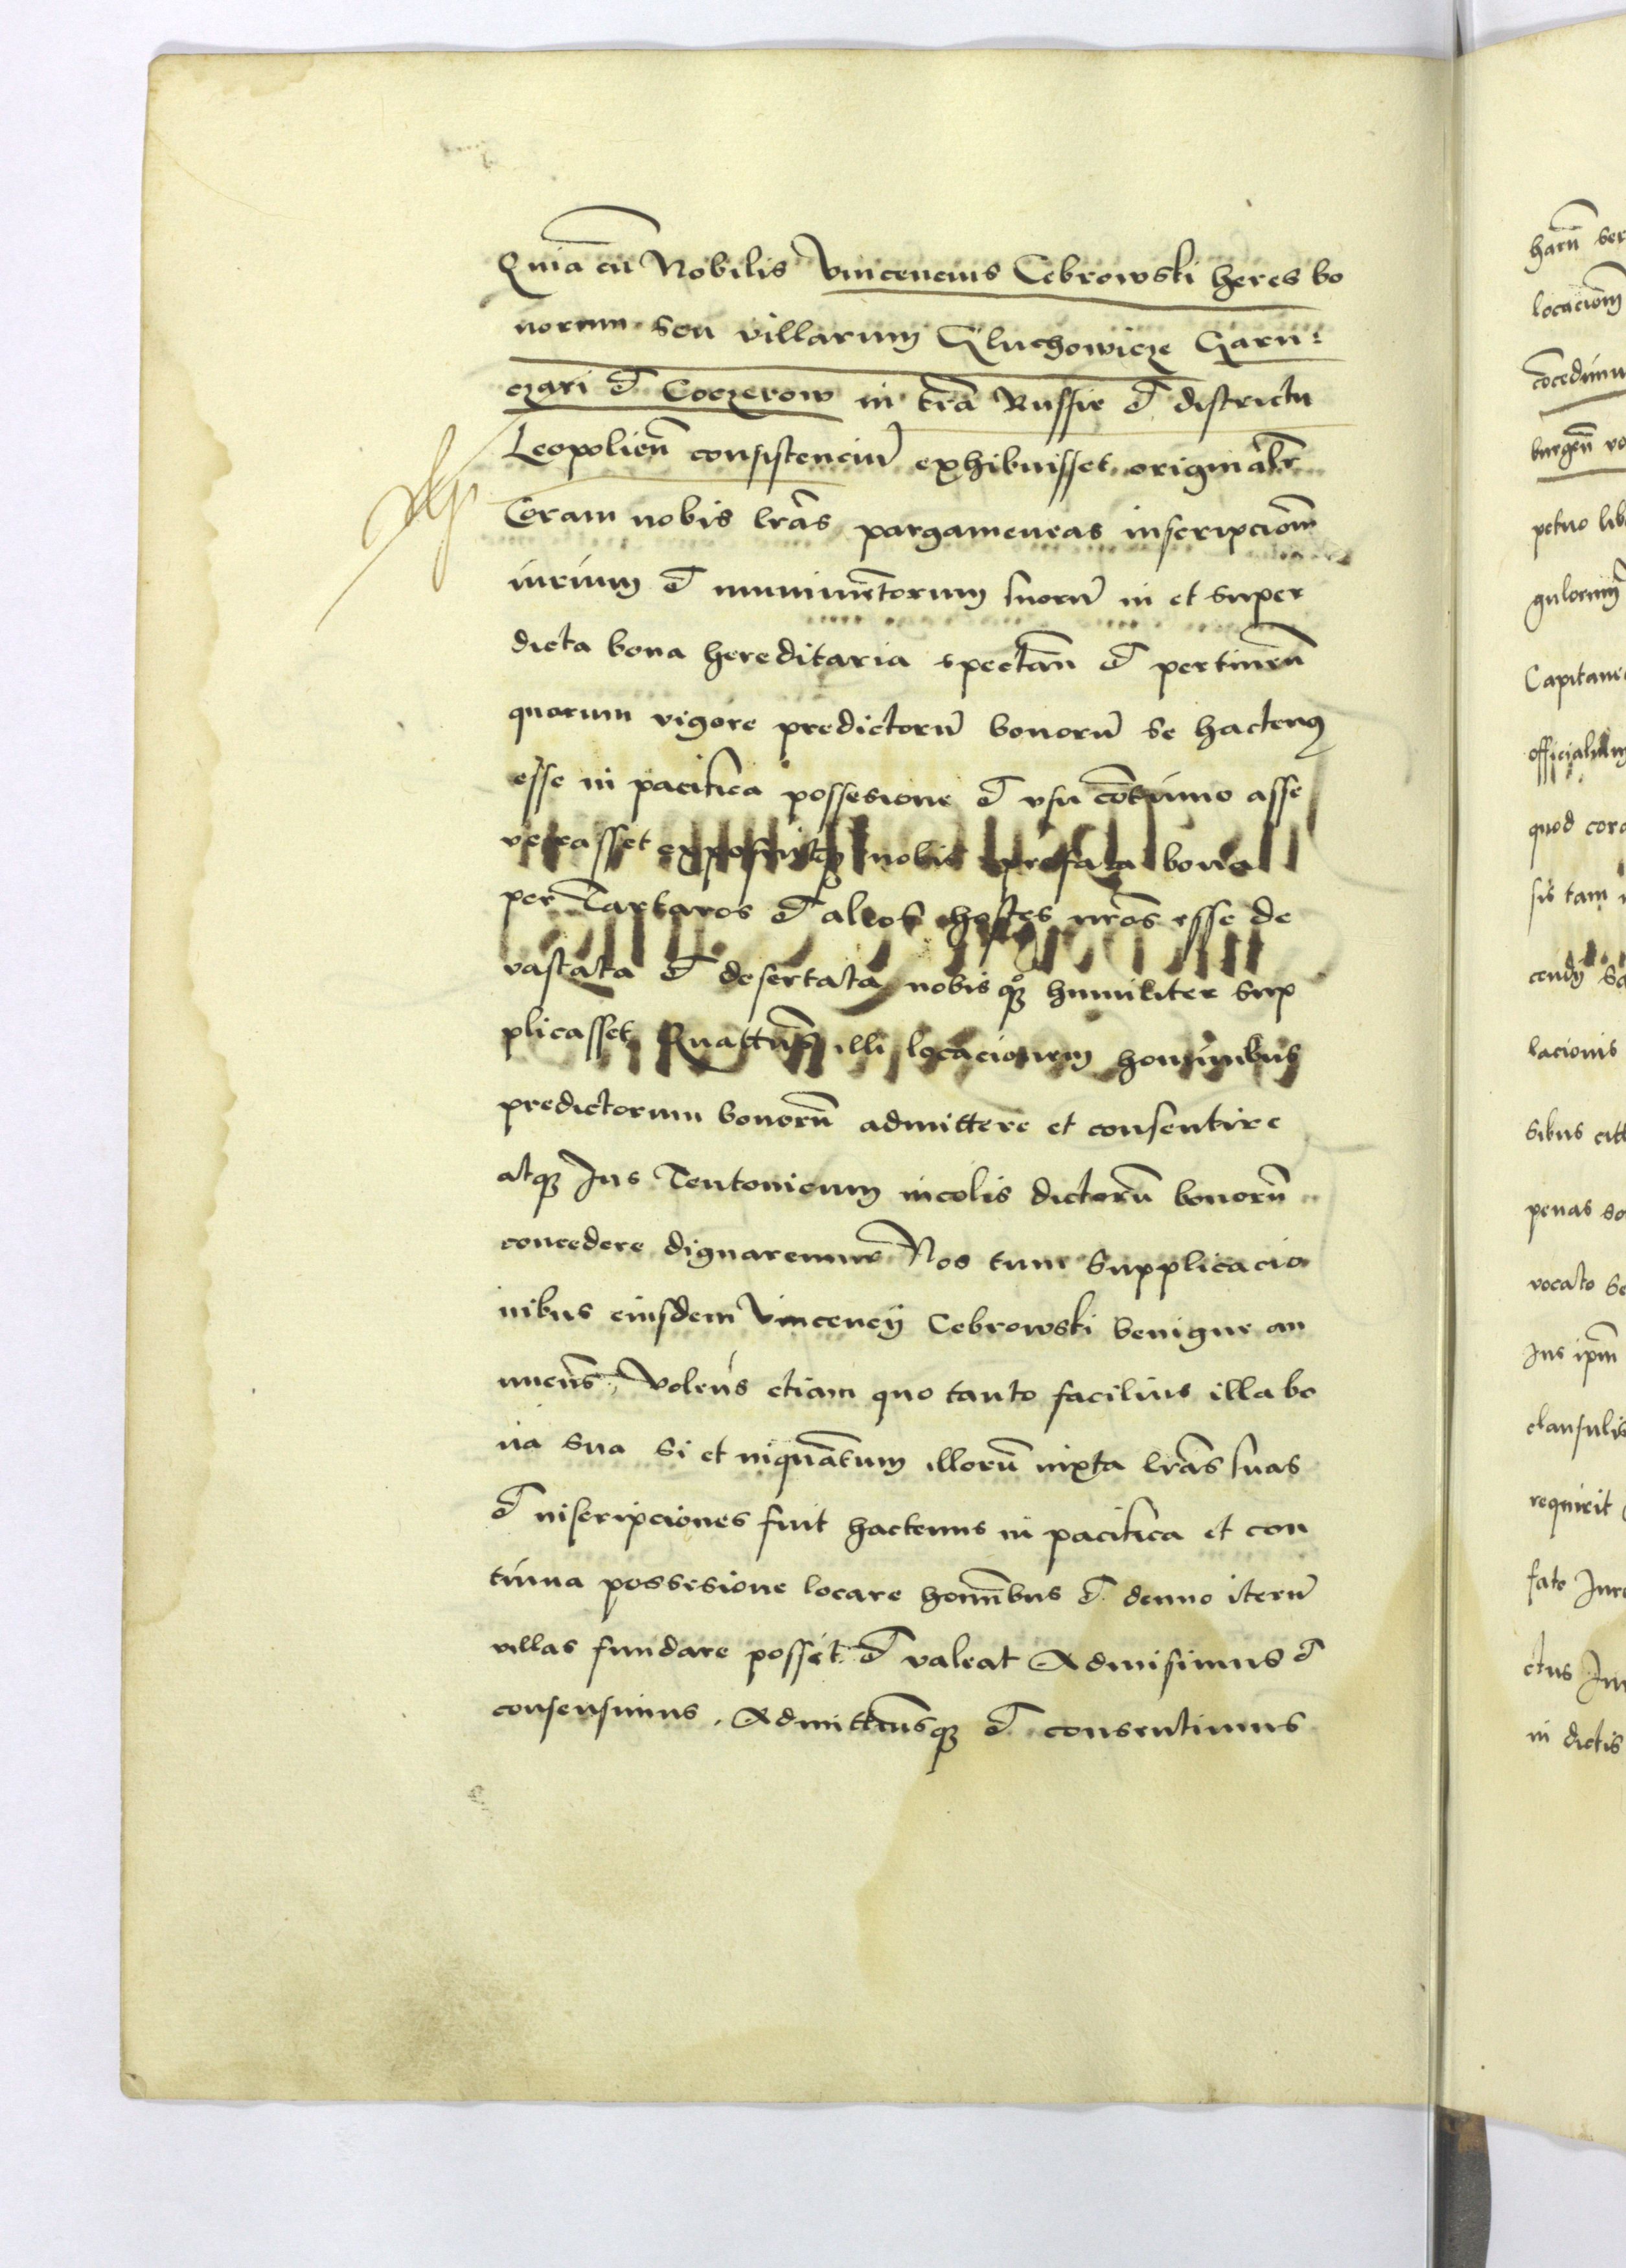 Quia cũ Nobilis Vincencius Cebrowski heres bo
norum seu villarum Gluchowicze Garn:
czari et Coczerow in trã Russie et districtu
Leopolieñ consistenciũ exhibuisset originalr̃
Coram nobis lrãs pargameneas inscripcionũ
iurium et munimẽtorum suorũ in et super
dicta bona hereditaria spectañ et pertineñ
quorum vigore predictorũ bonorũ se hactenꝰ
esse in pacifica possesione et vsu cõtinuo asse
verasset exposuitqꝫ nobis prefata bona
per Tartaros et alios hostes nrõs esse de
vastata et desertata nobisqꝫ humiliter sup
plicasset Quatñs illi locacionem hominibus
predictorum bonorũ admittere et consentire
atqꝫ Jus Teutonicum incolis dictorũ bonorũ
concedere dignaremur Nos tum supplicacio
nibus eiusdem Vincencij Cebrowski benigne an
nueñs, Voleñs etiam quo tanto facilius illa bo
na sua si et inquãtum illorũ iuxta lrãs suas
et inscripciones fuit hactenus in pacifica et con
tinua possesione locare homĩbus et denuo iterũ
villas fundare possit et valeat Admisimus et
consensimus. Admittimusqꝫ et consentimus
harũ
locacionem
cõcedimu
petuo lib
Capitane
quod cor
sis tam
lacionis
sibus
penas so
vocato
Jus ipm̃
clausulis
requirit
in dictis